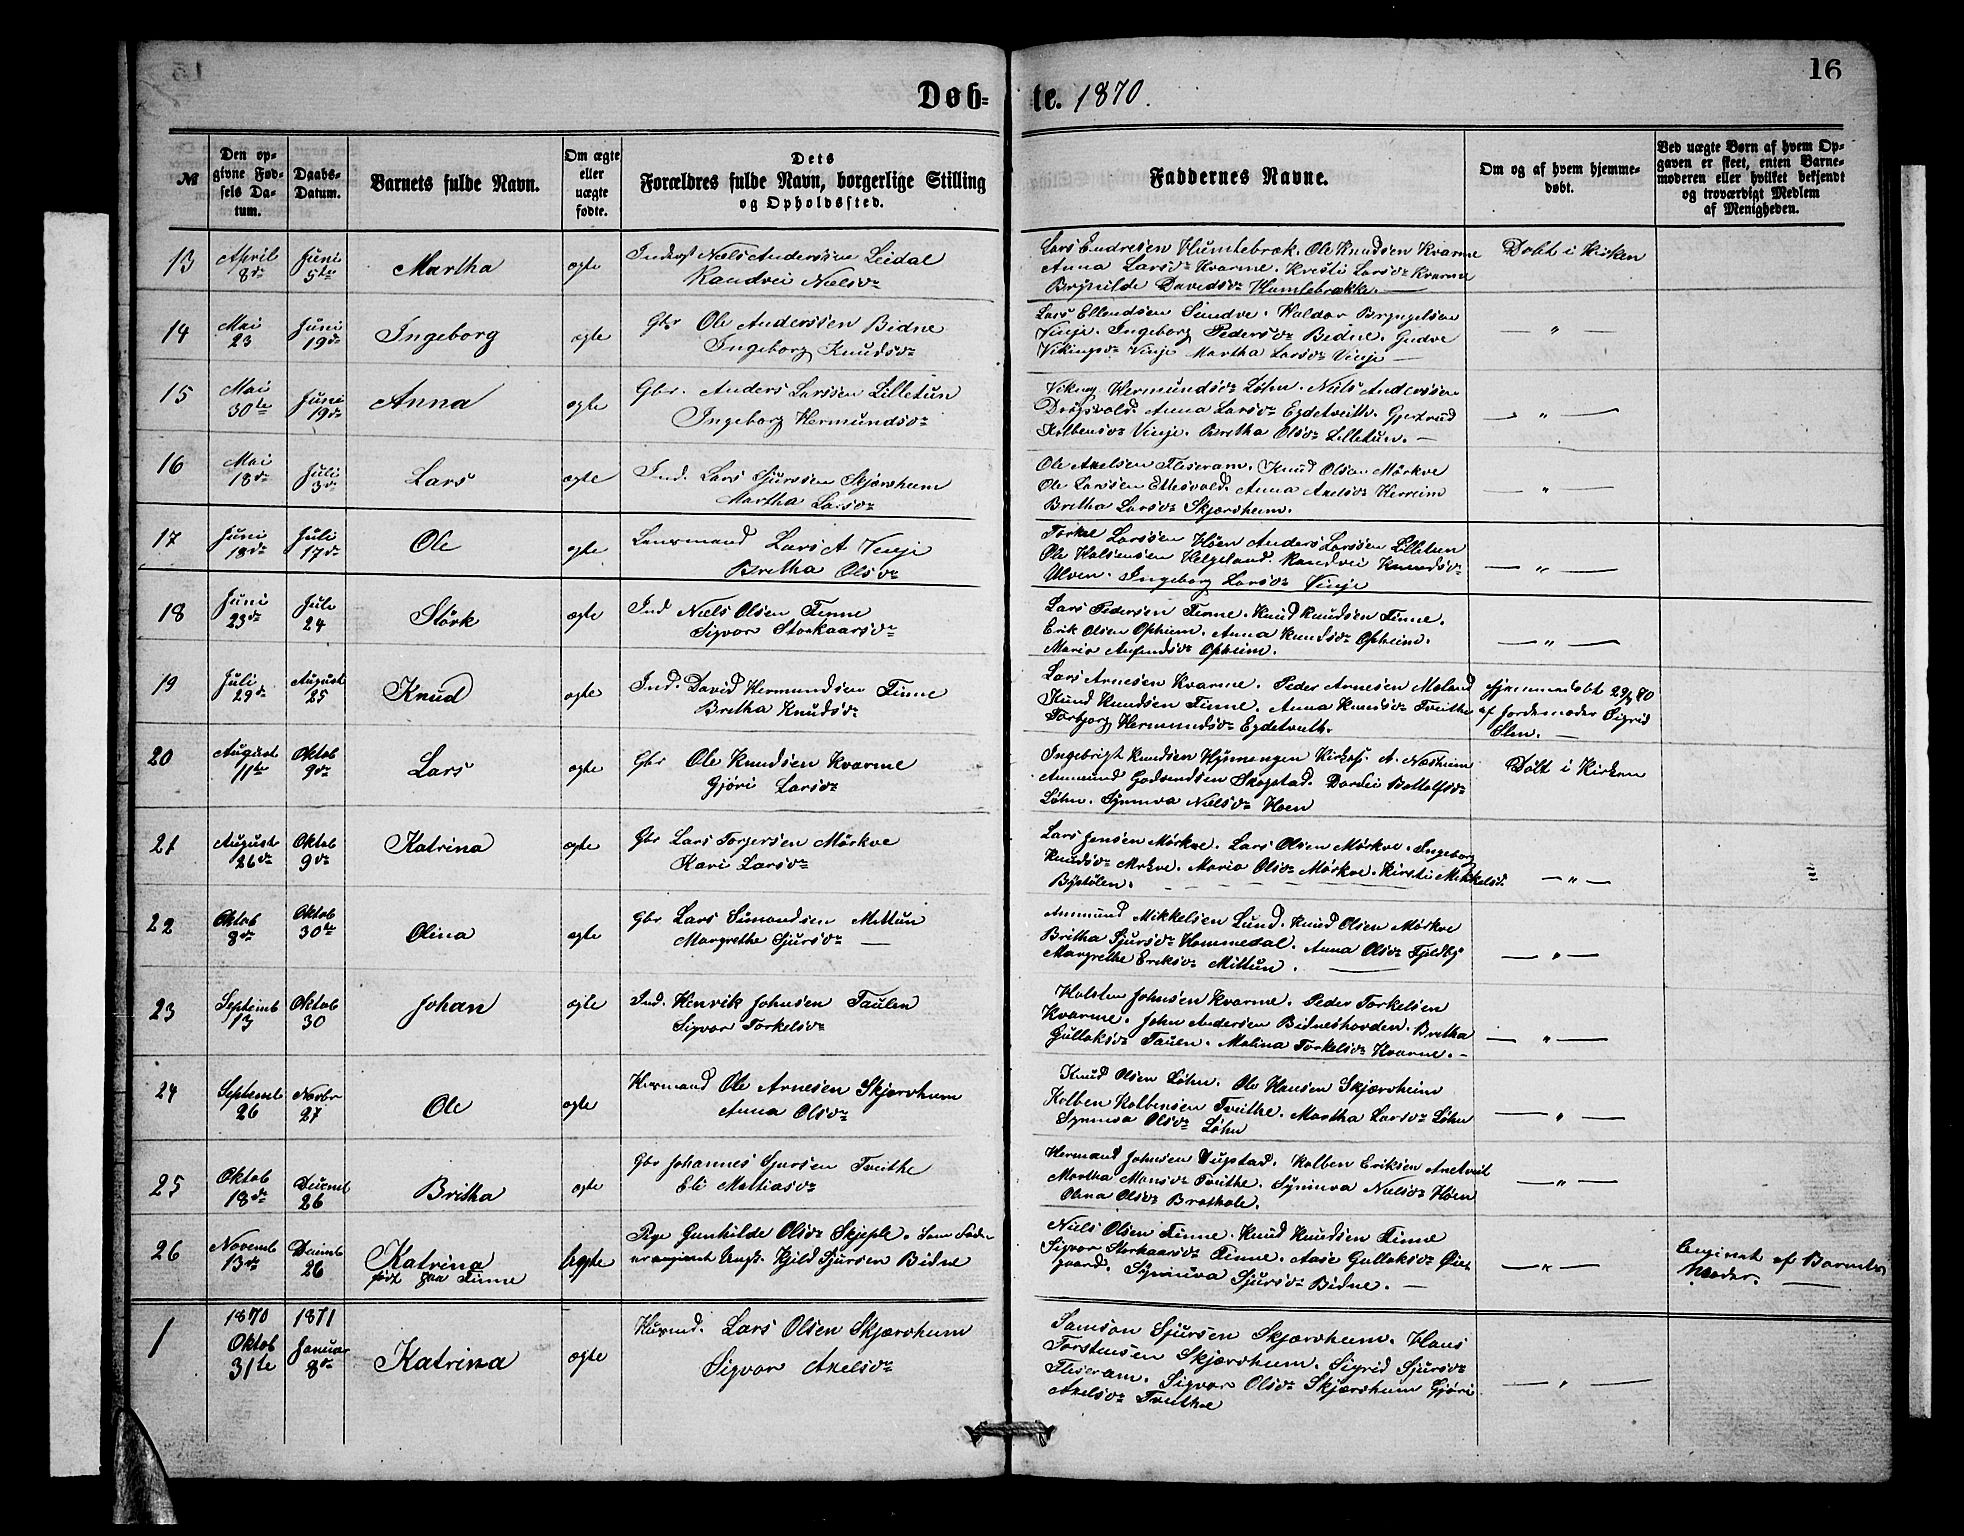 16
Døb- te. 1870.
№
Den op-
givne Fød-
sels Da-
tum.
Daabs-
Datum.
Barnets fulde Navn.
Om ægte
eller
uægte
fødte.
Dets
Forældres fulde Navn, borgerlige Stilling
og Opholdssted.
Faddernes Navne.
Om og af hvem hjemme-
døbt.
Ved uægte Børn af hvem Op-
gaven er skeet, enten Barne-
moderen eller hvilket bekjendt
og troværdigt Medlem
af Menigheden.
13 April 8de Juni 5te Martha ægte
Inderst Niels Anderssøn Leidal
Randvei Nielsdr
Lars Endresen Humlebræk. Ole Knudsen Kvarme
Anna Larsdr Kvarme. Kristi Larsdr Kvarme
Brynilde Davidsdr Humlebrække.
Døbt i Kirken
14 Mai 23 Juni 19de Ingeborg ægte
Gbr Ole Anderssen Bidne
Ingeborg Knudsdr
Lars Ellendsen Sundve. Haldor Bryngelsen
Vinje. Ingeborg Pedersdr Bidne. Gudve
Vikingsdr Vinje Martha Larsdr Vinje
"
15 Mai 30te Juni 19de Anna ægte
Gbr. Anders Larssen Lilletun
Ingeborg Hermundsdr
Viking Hermundsdr Løhn. Niels Anderssen
Drøgsvold. Anna Larsdr Egdetveith. Gjertrud
Kolbensdr Vinje. Bretha Olsdr Lilletun.
"
16 Mai 18de Juli 3de Lars ægte
Ind. Lars Sjurssen Skjærsheim
Martha Larsdr
Ole Axelsen Fliseram. Knud Olsen Mørkve
Ole Larssen Ettesvold. Anna Axelsdr Herreim
Bretha Larsdr Skjærsheim.
"
17 Juni 18de Juli 17de Ole ægte
Lensmand Lars A Vinje
Bretha Olsdr
Torkel Larssen Høen Anders Larssen Lilletun
Ole Halsensen Helgeland. Randvei Knudsdr
Ulven. Ingeborg Larsdr Vinje
"
18 Juni 23de Jule 24 Størk ægte
Ind Niels Olsen Finne
Sigvor Storkaarsdr
Lars Pedersen Finne. Knud Knudsen Finne.
Erik Olsen Opheim. Anna Knudsdr Opheim.
Maria Anfindsdr Opheim.
"
19 Juli 29de August 25 Knud ægte
Ind. David Hermundsen Finne
Bretha Knudsdr
Lars Arnesen Kvarme. Peder Arnesen Moland
Knud Knudsen Finne. Anna Knudsdr Tveithe
Torbjorg Hermundsdr Egdetveith.
Hjemmedøbt 29/7 80
af Jordemoder Sigrid
Slen.
20 August 11te Oktob 9de Lars ægte
Gbr Ole Knudsen Kvarme
Gjøri Larsdr
Ingebrigt Knudsen Hynnengen Kirkes. A. Nasheim
Anmund Godsendsen Skogstad. Dordei Bottolfsdr
Løhn. Synneva Nielsdr Høen
Døbt i Kirken
21 August 26de Oktob 9de Katrina ægte
Gbr Lars Torgersen Mørkve
Kari Larsdr
Lars Jensen Mørkve. Lars Olsen Mørkve. Ingeborg
Knudsdr Mrkve. Maria Olsdr Mørkve. Kirsti Mikkelsd.
Bystølen.
"
22 Oktob 8de Oktob 30te Olina ægte
Gbr Lars Simondsen Mittun
Margrethe Sjursdr
Anmund Mikkelsen Lund. Knud Olsen Mørkve
Britha Sjursdr Hommedal. Anna Olsdr Fjeldby
Margrethe Eriksdr Mittun.
"
23 Septemb 13 Oktob 30 Johan ægte
Ind. Henrik Johnsen Taulen
Sigvor Torkelsdr
Holsten Johnsen Kvarme. Peder Torkelsen
Kvarme. John Andersen Bidneshovden. Bretha
Gullaksdr Tauen. Malina Torkelsdr Kvarne.
"
24 Septemb 26 Novbr 27 Ole ægte
Husmand Ole Arnesen Skjærsheim
Anna Olsdr
Knud Olsen Løhn. Ole Hansen Skjærsheim
Kolben Kolbensen Tveithe. Martha Larsdr Løhn
Synneva Olsdr Løhn
"
25 Oktob 18de Decemb 26 Britha ægte
Gbr Johannes Sjursen Tveithe
Eli Mattiasdr
Hermand Johnsen Dugstad. Kolben Eriksen Aretveit
Martha Monsdr Tveithe. Synneva Nielsdr Høen
Olina Olsdr Brækhole.
"
26 Novemb 13de Decemb 26 Katrina
født paa Finne
Uægte
Pige Gunhilde Olsdr Skjeple. Som Fader
er angivet Ungk. Kjeld Sjursen Bidne
Niels Olsen Finne. Knud Knudsen Finne
Sigvor Storkaarsdr Finne. Aase Gullaksdr Øien
gaard. Synneva Sjursdr Bidne.
"
Angivet af Barnets
Moder.
1 1870 Oktob 31te 1871 Januar 8de Katrina ægte
Husmd. Lars Olsen Skjærsheim
Sigvor Axelsdr
Samson Sjursen Skjærsheim. Hans
Torstensen Skjærsheim. Sigrid Sjursdr
Fliseram. Sigvor Olsdr Skjærsheim Gjøri
Axelsdr Tveithe
"